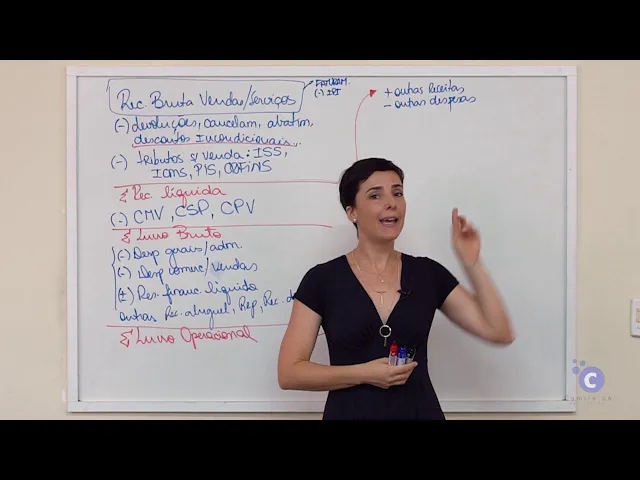 Rec. Bruta Vendas/Serviços
FATURAM.
(-) IPI
(-) devoluções, cancelam, abatim,
descontos Incondicionais...
(-) tributos s/ venda: ISS,
ICMS, PIS, COFINS
Σ Rec líquida
(-) CMV, CSP, CPV
Σ Lucro Bruto
(-) Desp gerais/adm.
(-) Desp comerc/Vendas
(±) Res. financ. líquido
outras Rec. aluguel, Rep, Rec. d
Σ Lucro Operacional
+ outras receitas
- outras despesas
C